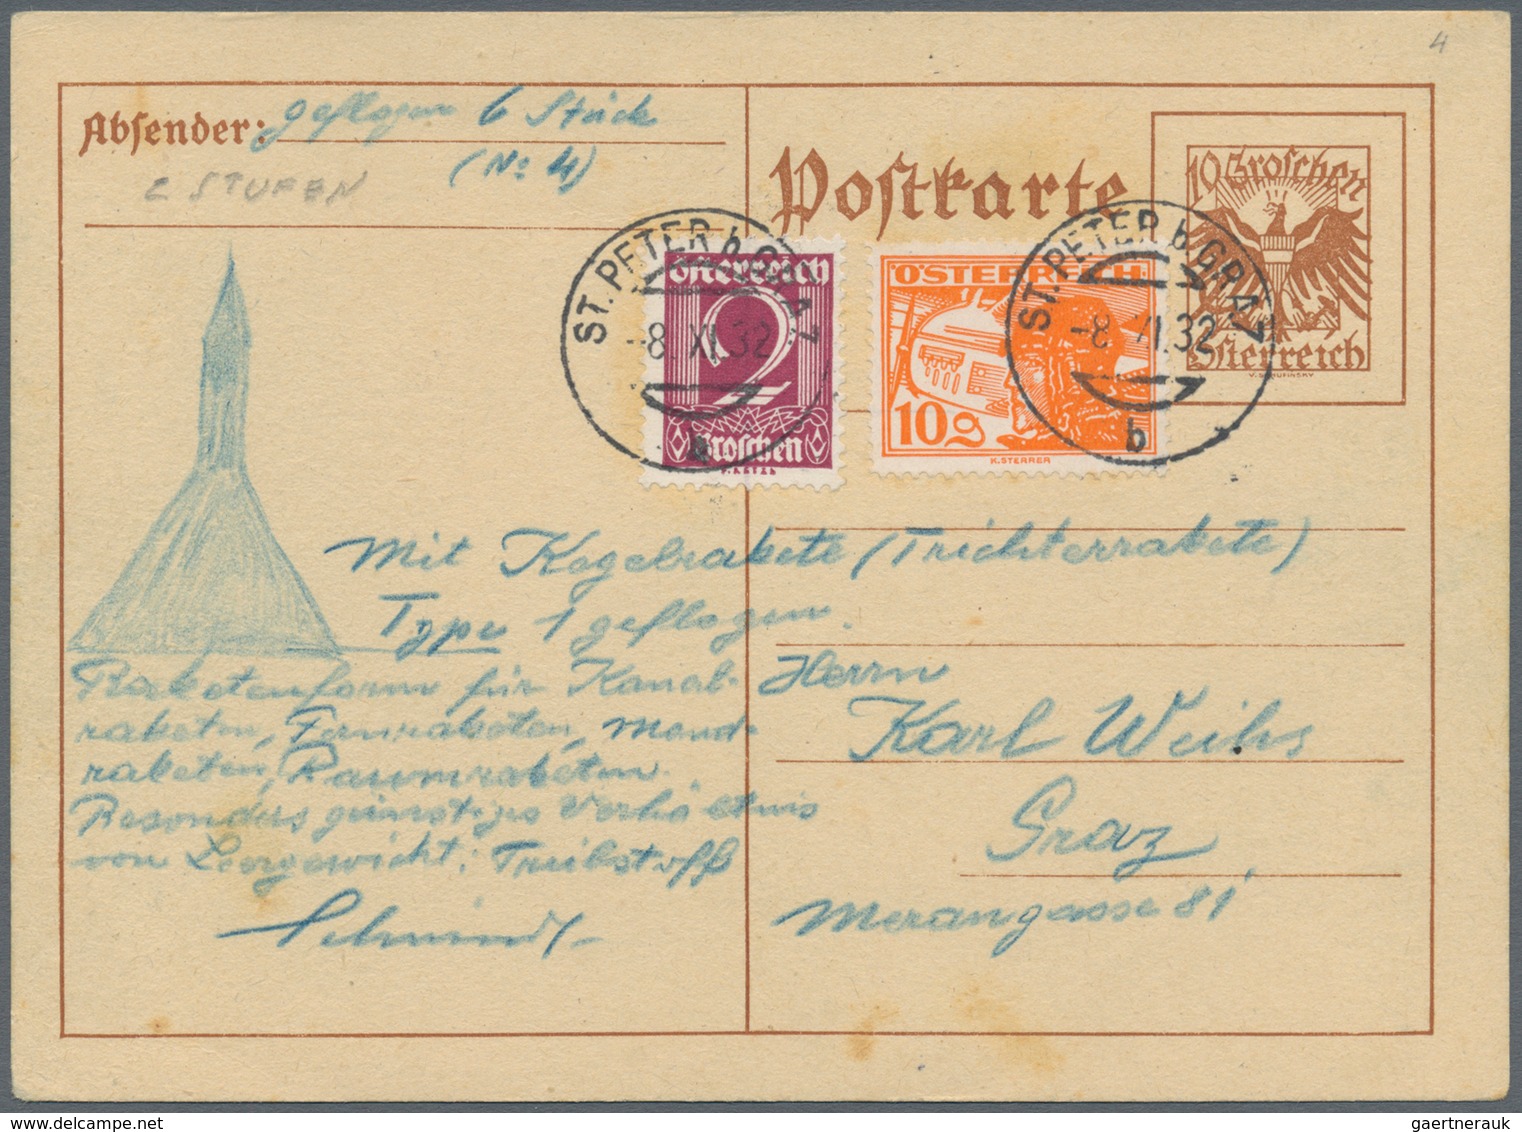 4
Absender: geflogen 6 Stück
(No 4)
2 STUFEN
Postkarte
10 Groschen
Österreich
V. SCHUFINSKY
ST. PETER b GRAZ
-8. XI. 32
b
Österreich
2
Groschen
ÖSTERREICH
10g
K. STERRER
ST. PETER b GRAZ
-8. XI. 32
b
Mit Kegelrakete (Trichterrakete)
Type 1 geflogen.
Raketenform für Kanal-
raketen, Fernraketen, Mond-
raketen, Raumraketen.
Besonders günstiges Verhältnis
von Leergewicht: Treibstoff
Schmiedl
Herrn
Karl Weihs
Graz
Merangasse 81
gaertnerauk @ delcampe.net